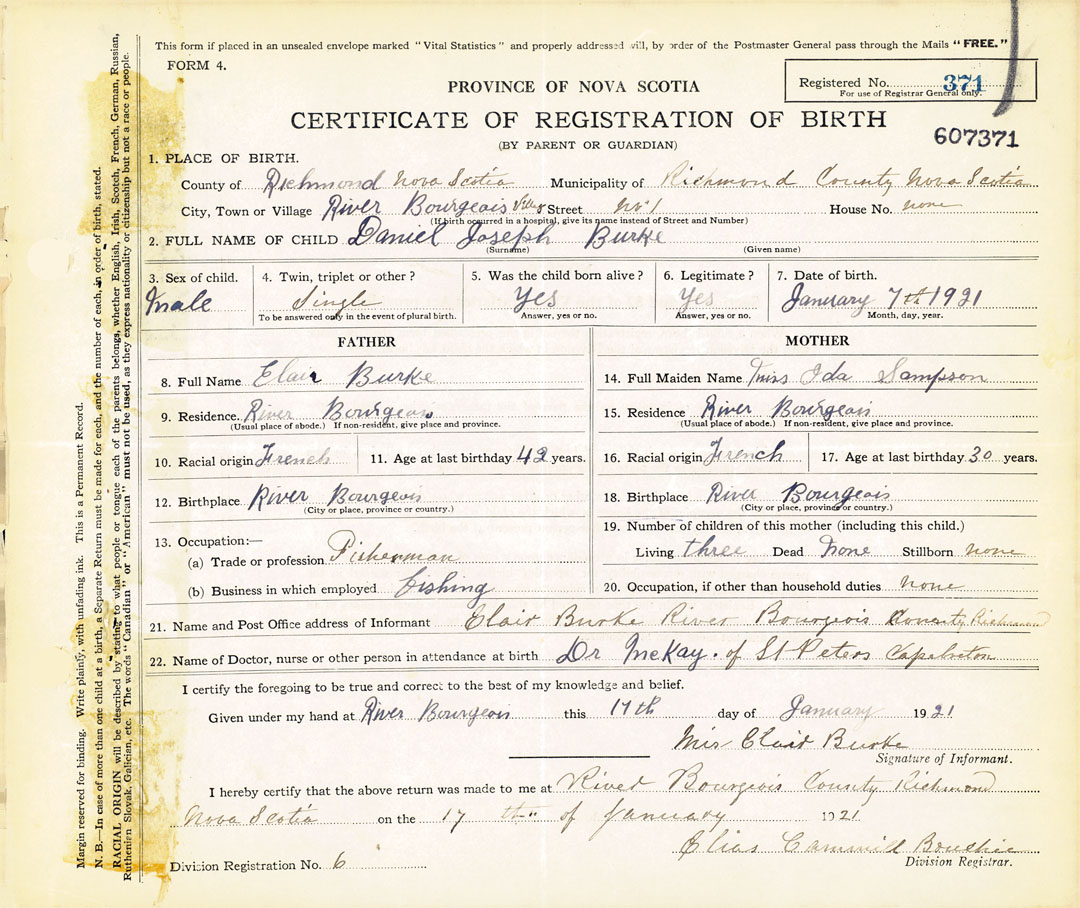 This form if placed in an unsealed envelope marked "Vital Statistics" and properly addressed will, by order of the Postmaster General pass through the Mails "FREE."
FORM 4.
Registered No. 371
For use of Registrar General only.
PROVINCE OF NOVA SCOTIA
CERTIFICATE OF REGISTRATION OF BIRTH
607371
(BY PARENT OR GUARDIAN)
1. PLACE OF BIRTH.
County of Richmond Nova Scotia Municipality of Richmond County Nova Scotia
City, Town or Village River Bourgeois Village Street No 1 House No. none
(If birth occurred in a hospital, give its name instead of Street and Number)
2. FULL NAME OF CHILD Daniel Joseph Burke
(Surname) (Given name)
3. Sex of child. 4. Twin, triplet or other? 5. Was the child born alive? 6. Legitimate? 7. Date of birth.
Male Single Yes Yes January 7th 1921
To be answered only in the event of plural birth. Answer, yes or no. Answer, yes or no. Month, day, year.
FATHER MOTHER
8. Full Name Clair Burke 14. Full Maiden Name Miss Ida Sampson
9. Residence. River Bourgeois 15. Residence River Bourgeois
(Usual place of abode.) If non-resident, give place and province. (Usual place of abode.) If non-resident, give place and province.
10. Racial origin French 11. Age at last birthday 42 years. 16. Racial origin French 17. Age at last birthday 30 years.
12. Birthplace River Bourgeois 18. Birthplace River Bourgeois
(City or place, province or country.) (City or place, province or country.)
19. Number of children of this mother (including this child.)
13. Occupation:—
(a) Trade or profession Fisherman Living three Dead None Stillborn none
(b) Business in which employed fishing 20. Occupation, if other than household duties none
21. Name and Post Office address of Informant Clair Burke River Bourgeois County Richmond
22. Name of Doctor, nurse or other person in attendance at birth Dr McKay. of St Peters Capebreton
I certify the foregoing to be true and correct to the best of my knowledge and belief.
Given under my hand at River Bourgeois this 17th day of January 1921
Mrs Clair Burke
Signature of Informant.
I hereby certify that the above return was made to me at River Bourgeois County Richmond
Nova Scotia on the 17 th of January 1921
Elias Cammill
Division Registrar.
Division Registration No. 6
Margin reserved for binding. Write plainly, with unfading ink. This is a Permanent Record.
N. B.—In case of more than one child at a birth, a Separate Return must be made for each, and the number of each, in order of birth, stated.
RACIAL ORIGIN will be described by stating to what people or tongue each of the parents belongs, whether English, Irish, Scotch, French, German, Russian,
Ruthenian Slovak, Galician, etc. The words "Canadian" or "American" must not be used, as they express nationality or citizenship but not a race or people.